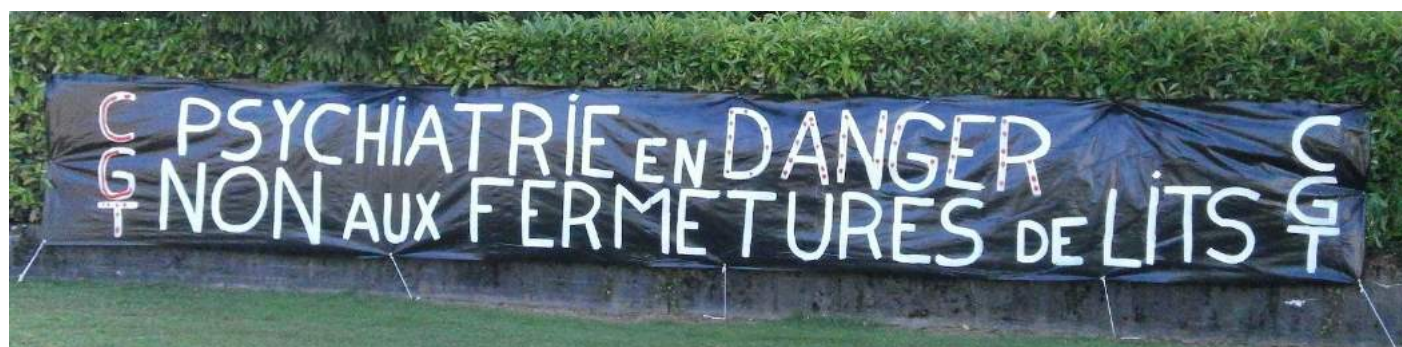 CGT
PSYCHiATRiE EN DANGER
NON AUX FERMETURES DE LiTS
CGT